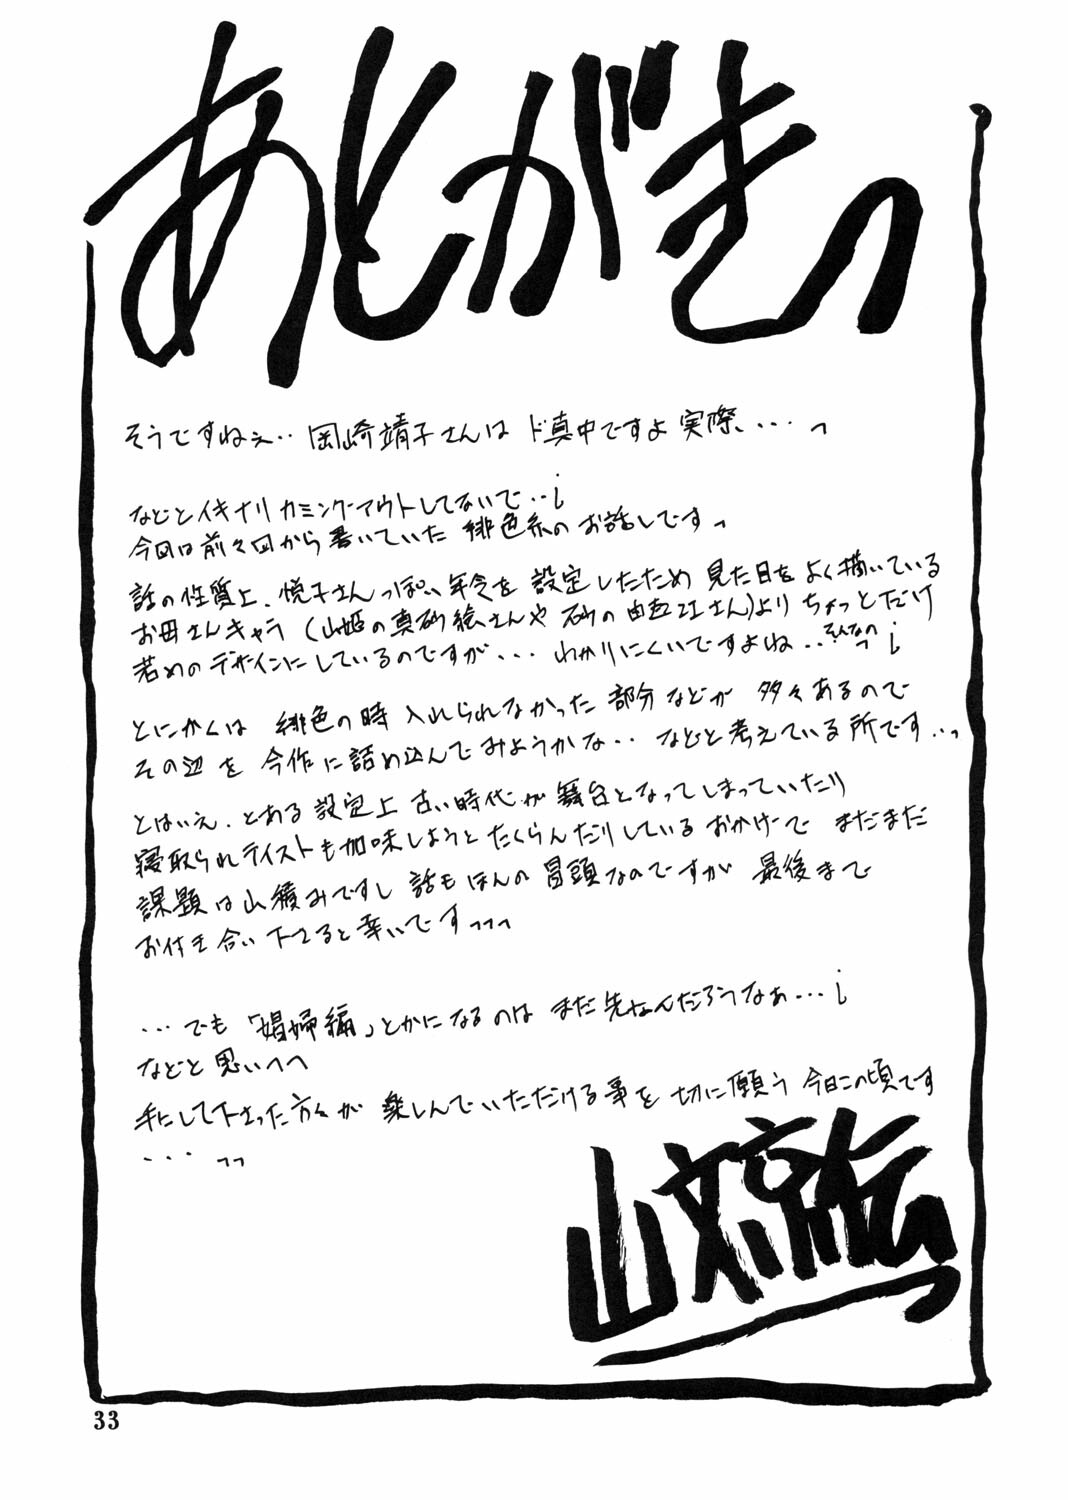 あとがきっ
そうですねぇ‥岡崎靖子さんは ド真中ですよ実際、‥‥っ
などとイキナリ カミングアウトしてないで‥¡
今回は前々回から書いていた 緋色系のお話しですっ
話の性質上、悦子さんっぽい年令を 設定したため 見た目をよく描いている
お母さんキャラ(山姫の真砂絵さんや 砂の由五江さん)より ちょっとだけ
若めのデザインにしているのですが‥‥ わかりにくいですよね‥そんなのっ¡
とにかくは 緋色の時 入れられなかった 部分などが 多々あるので
その辺を 今作に詰め込んでみようかな‥ などと考えている所です‥っ
とはいえ、とある設定上 古い時代が 舞台となってしまっていたり
寝取られテイストも加味しようと たくらんだりしているおかげで まだまだ
課題は山積みですし 話もほんの冒頭なのですが 最後まで
お付き合い下さると幸いですっっっ
‥‥でも「娼婦編」とかになるのは まだ先なんだろうなぁ‥‥¡
などと思いつつ
手にして下さった方々が 楽しんでいただける事を 切に願う 今日この頃です
‥‥っっ
山文京伝
33